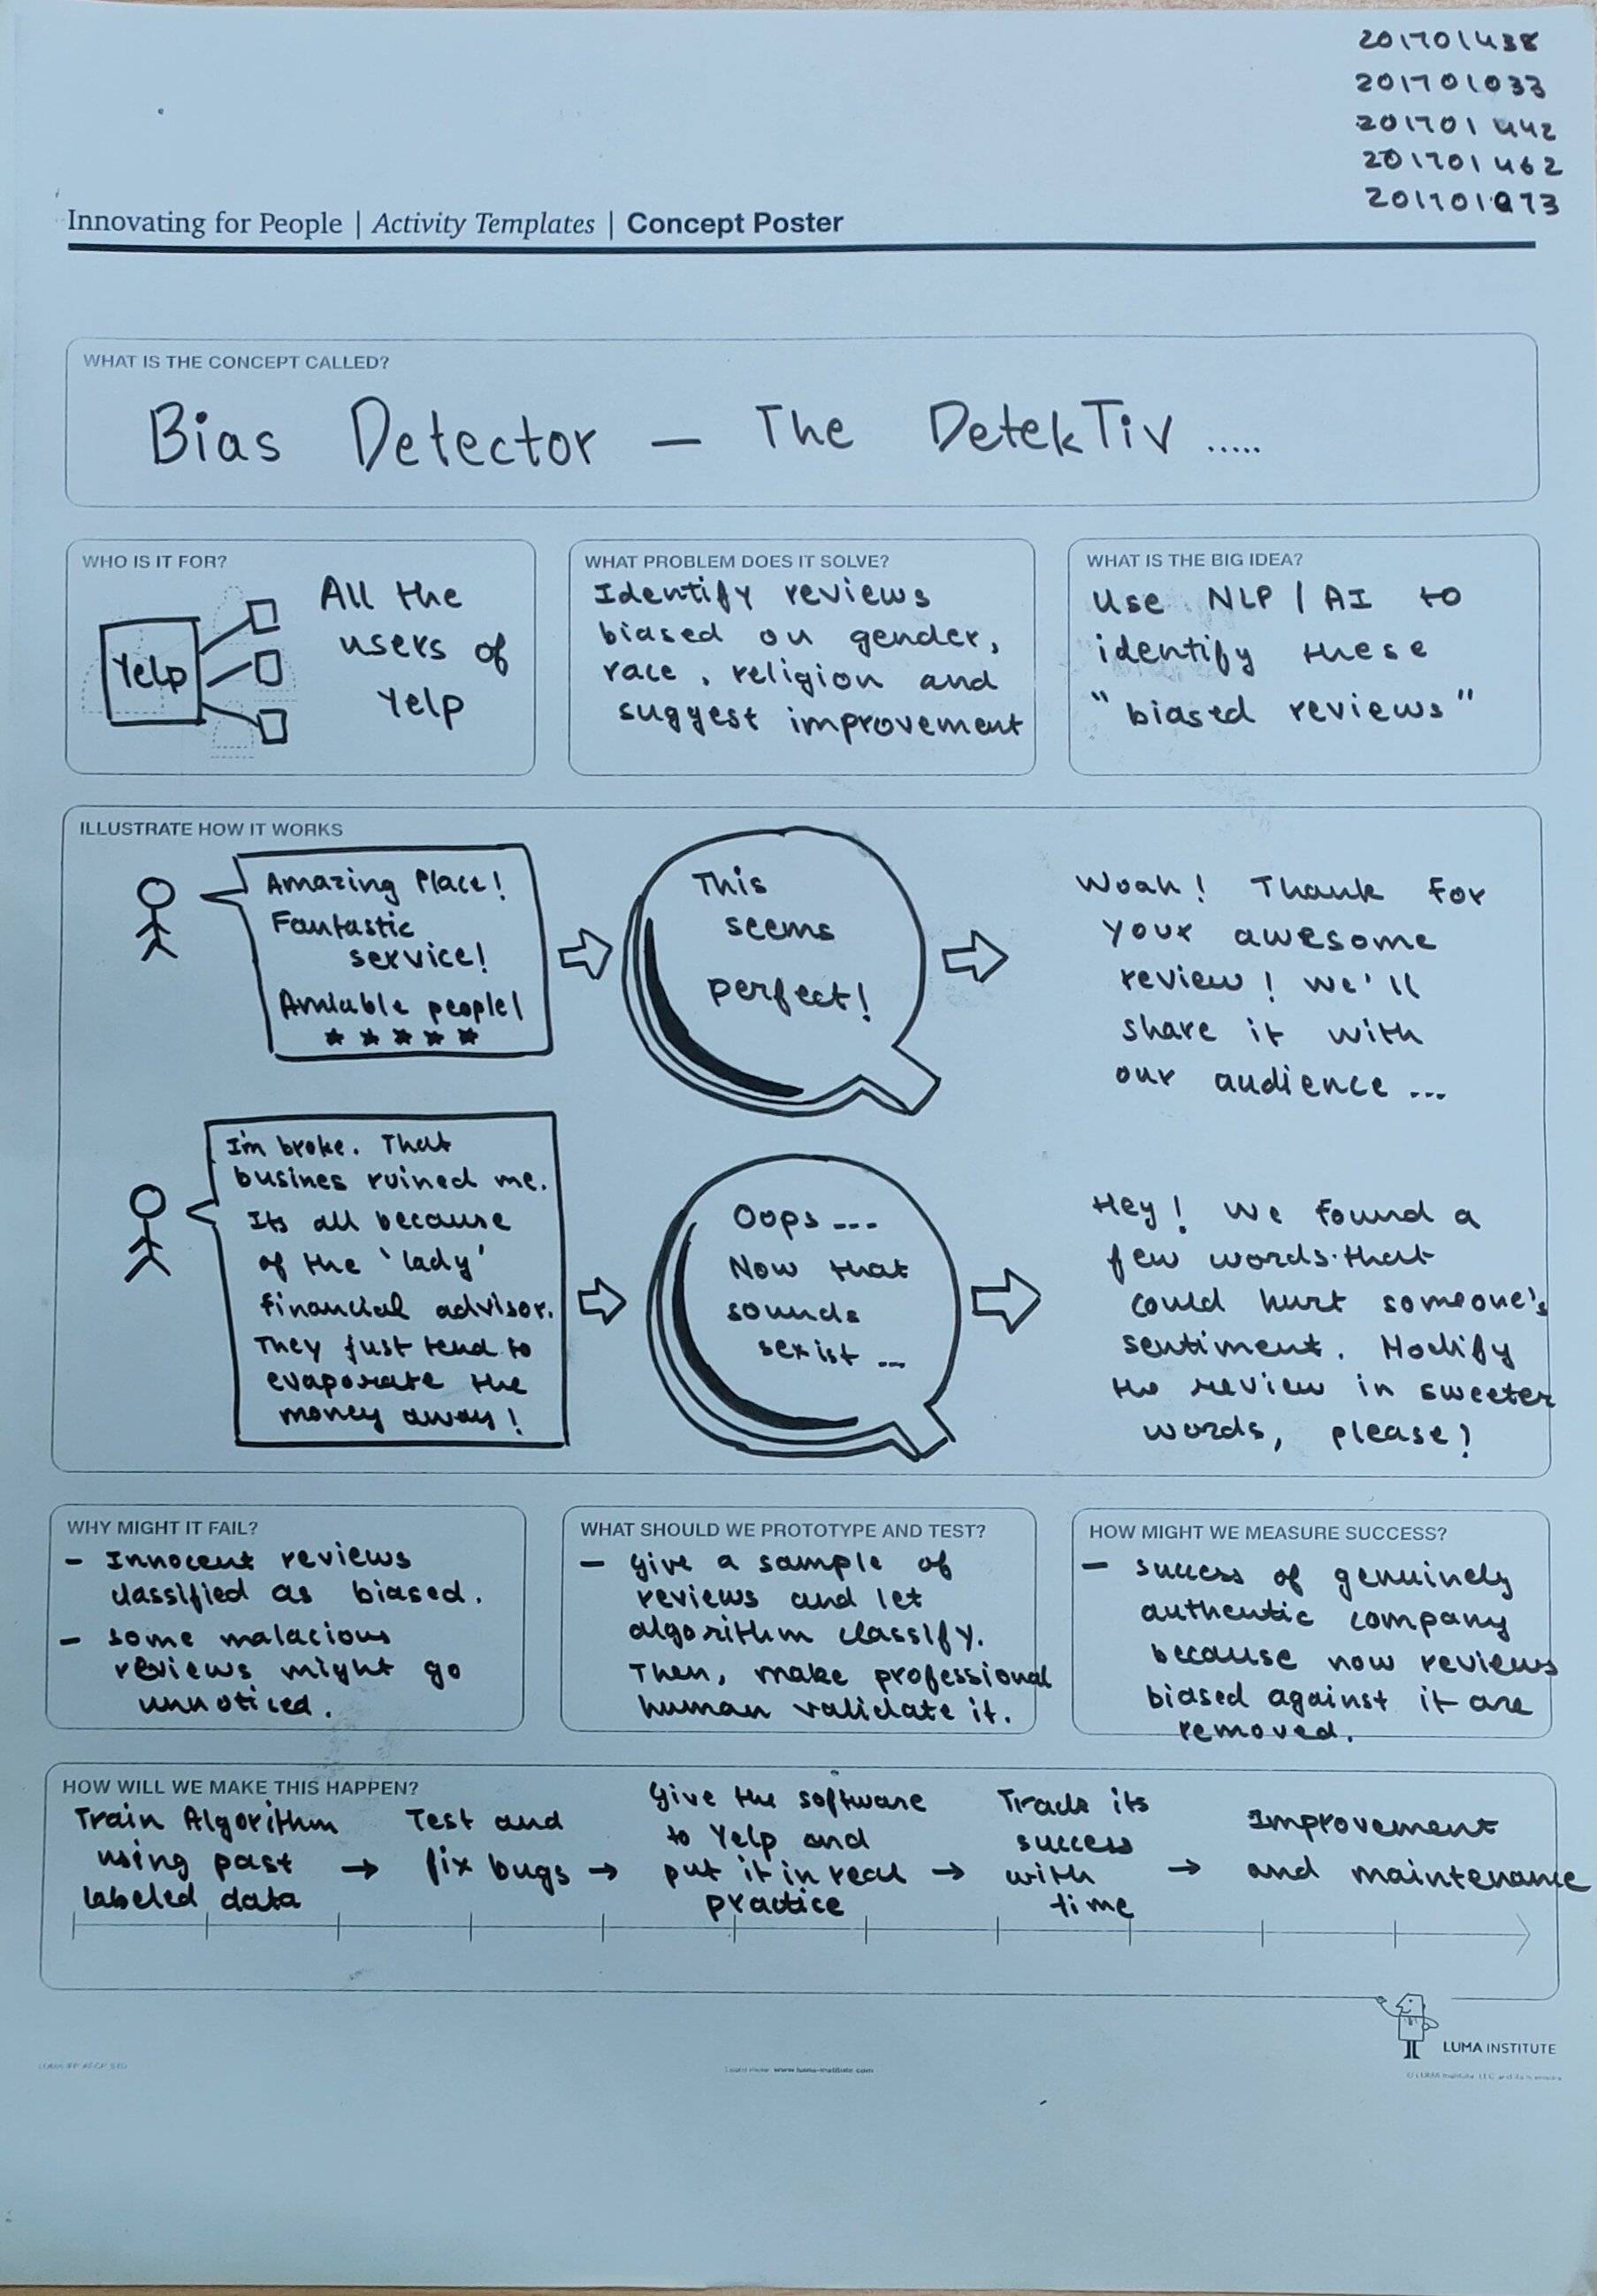 201701438
201701033
201701442
201701462
Innovating for People | Activity Templates | Concept Poster
WHAT IS THE CONCEPT CALLED?
Bias Detector — The DetekTiv .....
WHO IS IT FOR?
Yelp
All the
users of
Yelp
WHAT PROBLEM DOES IT SOLVE?
Identify reviews
biased on gender,
race, religion and
suggest improvement
WHAT IS THE BIG IDEA?
Use NLP / AI to
identify these
"biased reviews"
ILLUSTRATE HOW IT WORKS
Amazing Place!
Fantastic
service!
Amiable people!
★ ★ ★ ★ ★
This
seems
perfect!
Woah! Thank for
your awesome
review! We'll
share it with
our audience ...
I'm broke. That
busines ruined me.
Its all because
of the 'lady'
financial advisor.
They just tend to
evaporate the
money away!
Oops ---
Now that
sounds
sexist ...
Hey! We found a
few words that
could hurt someone's
sentiment. Modify
the review in sweeter
words, please!
WHY MIGHT IT FAIL?
- Innocent reviews
classified as biased.
- some malacious
reviews might go
unnoticed.
WHAT SHOULD WE PROTOTYPE AND TEST?
- Give a sample of
reviews and let
algorithm classify.
Then, make professional
human validate it.
HOW MIGHT WE MEASURE SUCCESS?
- success of genuinely
authentic company
because now reviews
biased against it are
removed.
HOW WILL WE MAKE THIS HAPPEN?
Train Algorithm
using past
labeled data
→
Test and
fix bugs
→
Give the software
to Yelp and
put it in real
practice
→
Track its
success
with
time
→
Improvement
and maintenance
LUMA INSTITUTE
Learn more: www.luma-institute.com